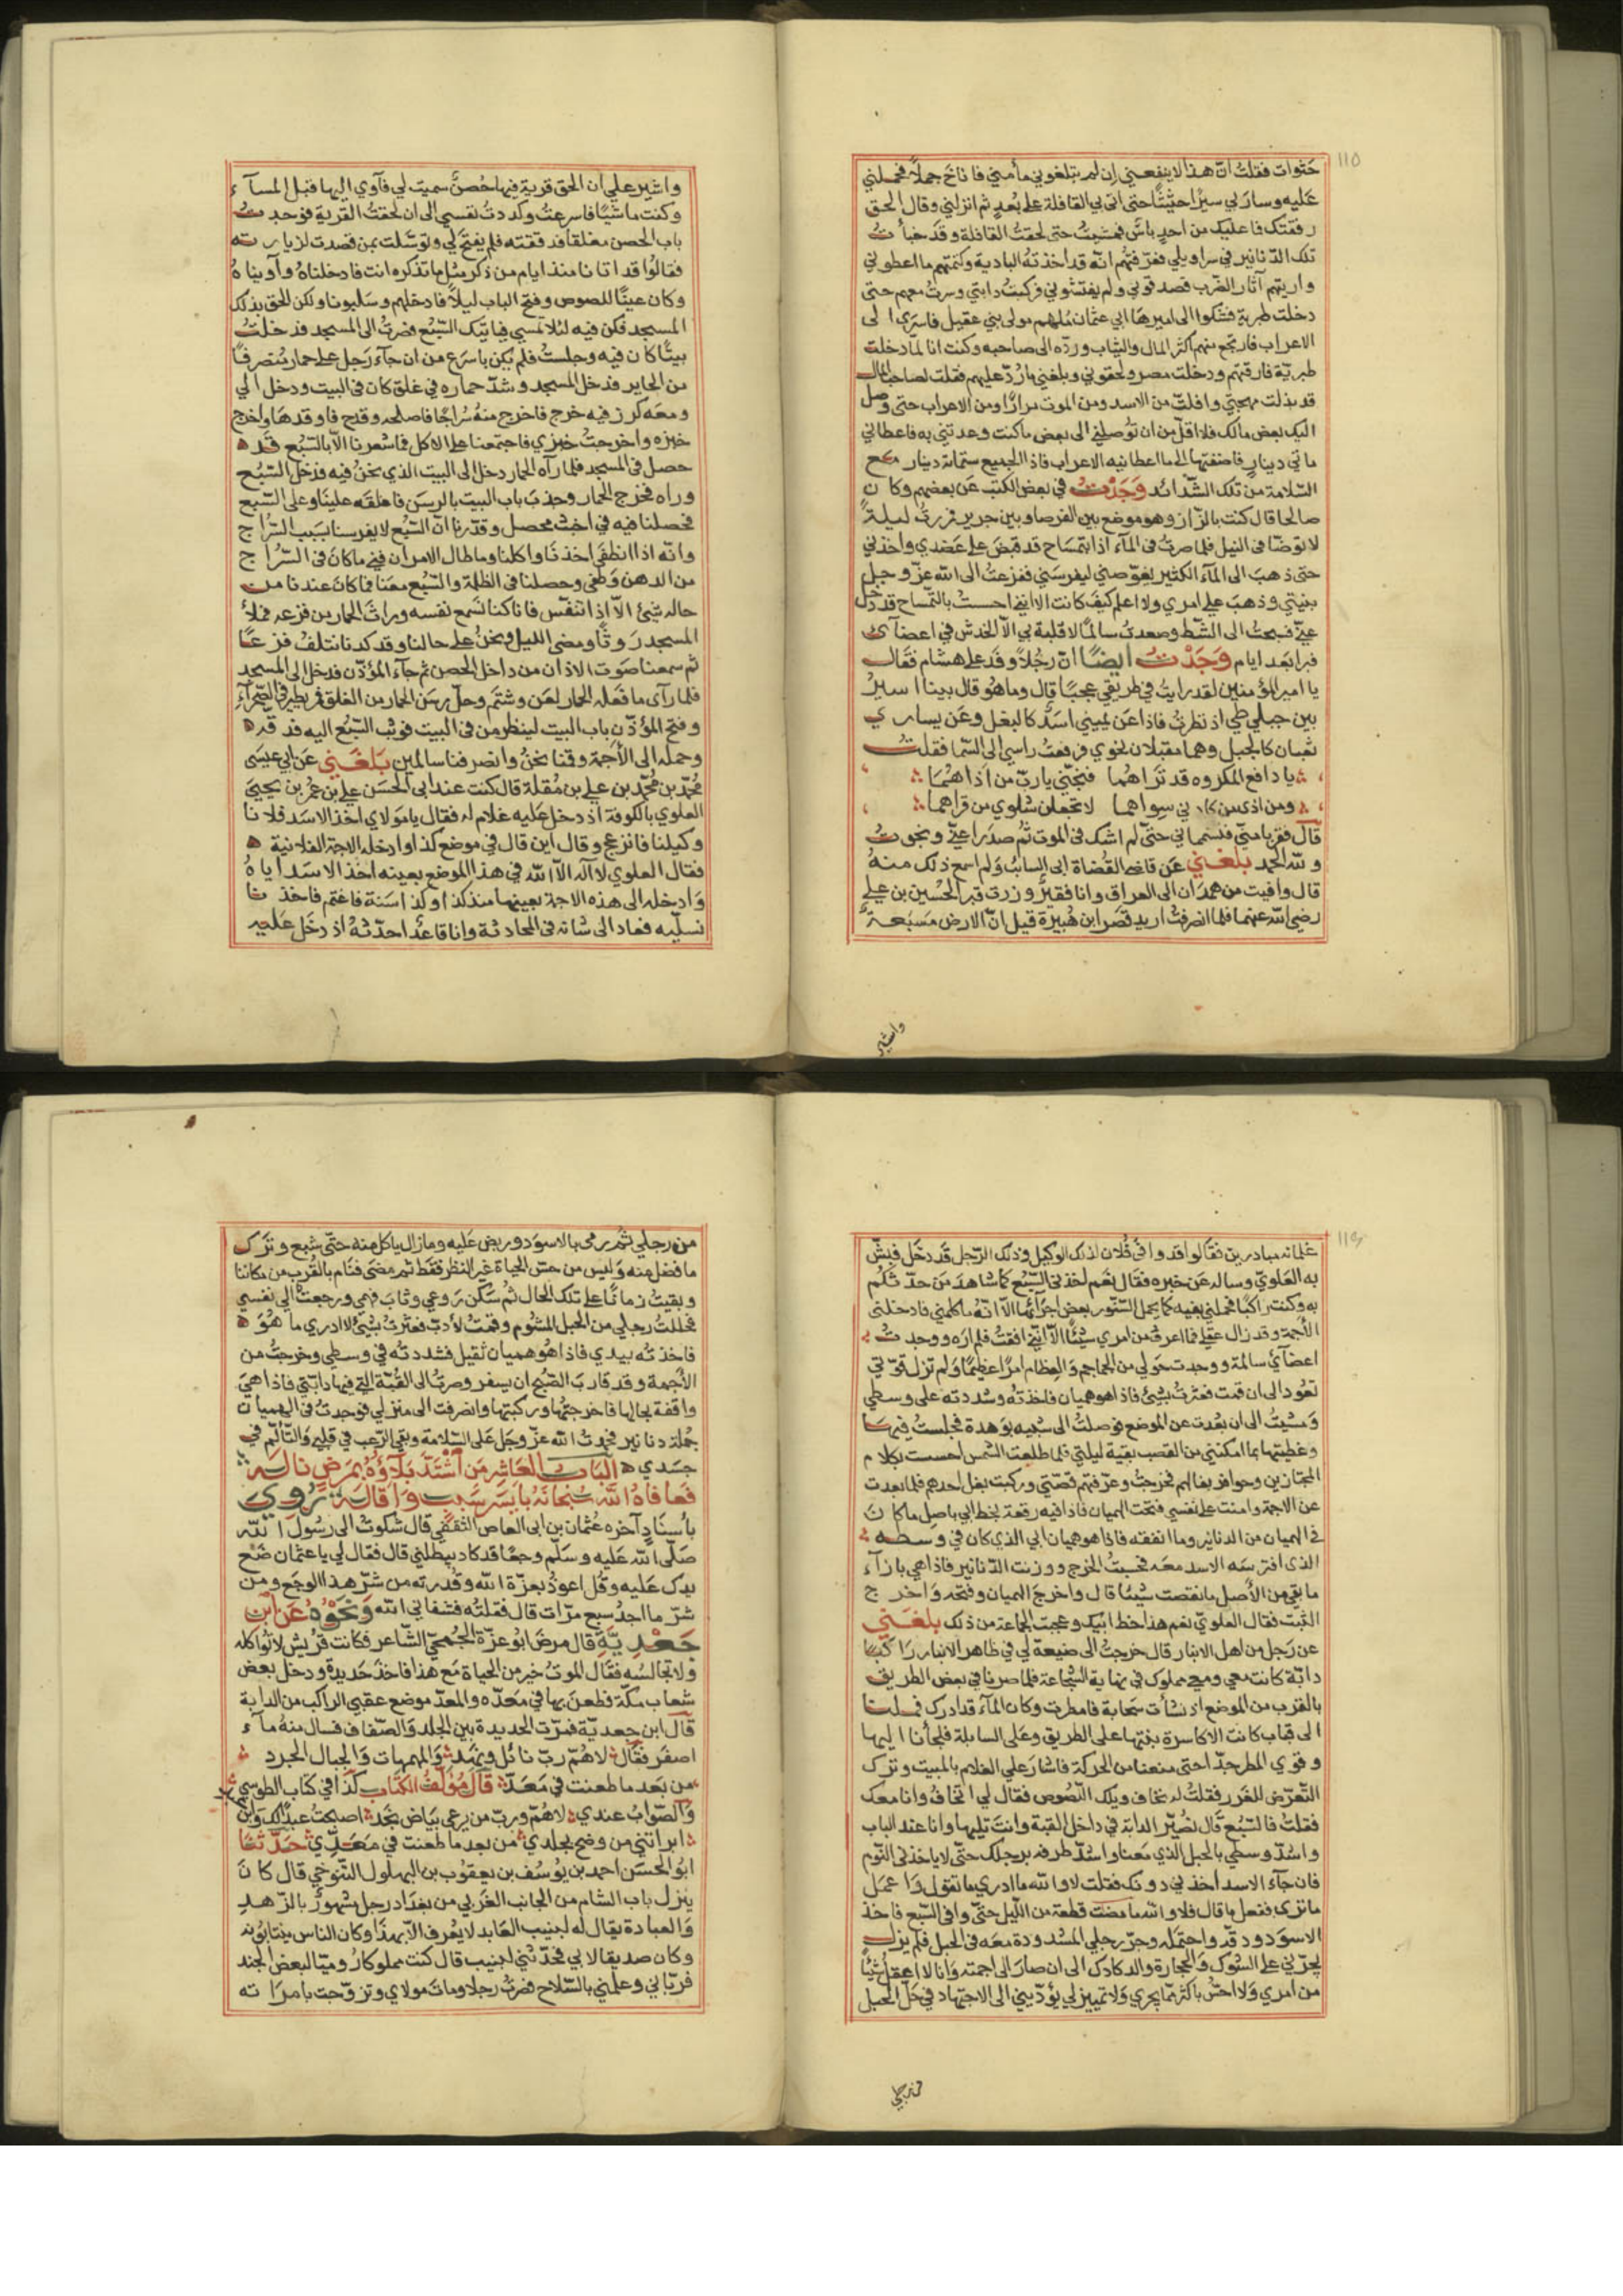 ١١٥
حثوات فقلت ان هذا لا ينفعني إن لم تبلغوني مأمني فاناخ جملاً فحملني
عليه وسار بي سيرًا حثيثًا حتى اتى بي القافلة على بُعدٍ ثم انزلني وقال الحق
رفقتك فما عليك من احدٍ باس فمشيتُ حتى لحقتُ القافلة وقد خبأت
تلك الدنانير في سراويلي فعرفتهم انه قد اخذته البادية وكتمتهم ما اعطوني
واريتهم آثار الضرب فصدقوني ولم يفتشوني فركبتُ دابتي وسرتُ معهم حتى
دخلت طبرية فشكوا الى اميرها ابي عثمان مُلهم مولى بني عقيل فاسرى الى
الاعراب فارتجع منهم اكثر المال والثياب وردّه الى صاحبه وكنت انا لما دخلت
طبرية فارقتهم ودخلت مصر ولحقوني وبلغني ما رُدّ عليهم فقلت لصاحب المال
قد بذلت مهجتي وافلتّ من الاسد ومن الموت مرارًا ومن الاعراب حتى وصل
اليك بعض مالك فلا اقلّ من ان توصلني الى بعض ما كنت وعدتني به فاعطاني
مائتي دينارٍ فاضفتها الى ما اعطانيه الاعراب فاذا الجميع ستمائة دينار مع
السلامة من تلك الشدائد وَجَدْتُ في بعض الكتب عن بعضهم وكان
صالحا قال كنت بالزاز وهو موضع بين الفرصا وبين جرير فزرتُ ليلةً
لاتوضّا في النيل فلما صرت في الماء اذا بتمساح قد قبض على عضدي واخذني
حتى ذهب الى الماء الكثير يغوّصني ليفرسني ففزعتُ الى الله عز وجل
بنيتي وذهب علي امري ولا اعلم كيف كانت الا اني احسست بالتمساح قد دخل
عنّي فسبحتُ الى الشط وصعدت سالمًا لا قلبة بي الا الخدش في اعضائي
فبرا بعد ايام وَجَدْتُ أيضًا انّ رجُلاً وفد على هشام فقال
يا امير المؤمنين لقد رايتُ في طريقي عجبًا قال وما هو قال بينا اسيرُ
بين جبلي طي اذ نظرتُ فاذا عن يميني اسدٌ كالبغل وعن يساري
ثعبان كالجبل وهما مقبلان نحوي فرفعتُ راسي الى السما فقلتُ
يا دافع المكروه قد تراهُما فنجّني يا ربّ من اذاهُما
ومن اذى من كادني سواهما لا تجعلن شلوي من قراهما
قال فقربا منّي فشمّاني حتّى لم اشك في الموت ثُم صدرا عنّي ونجوت
ولله الحمد بلغني عن قاضي القُضاة ابي السائب ولم اسمع ذلك منهُ
قال وافيت من همدان الى العراق وانا فقيرٌ وزرت قبر الحُسين بن علي
رضي الله عنهما فلما انصرفتُ اريد قصر ابن هُبيرة قيل انّ الارض مسبعة
واشير
واشير علي ان الحق قرية فيها حُصنٌ سميت لي فآوي اليها قبل المسآء
وكنت ماشيًا فاسرعتُ وكددتُ نفسي الى ان لحقتُ القرية فوجدت
باب الحصن مغلقا فدققته فلم يفتح لي وتوسلت بمن قصدت لزيارته
فقالُوا قد اتانا منذ ايام من ذكر مثل ما تذكره انت فادخلناهُ وآويناهُ
وكان عينًا للصوص وفتح الباب ليلاً فادخلهم وسلبونا ولكن الحق بذلك
المسجد فكن فيه لئلا تمسي فياتيك السبُع فصرتُ الى المسجد فدخلتُ
بيتًا كان فيه وجلستُ فلم يكن باسرع من ان جآء رجل على حمار منصرفًا
من الحاير فدخل المسجد وشدّ حماره في غلق كان في البيت ودخل الي
ومعه كرز فيه خرج فاخرج منهُ سراجًا فاصلحه وقدح فاوقدها واخرج
خبزه واخرجتُ خبزي فاجتمعنا على الاكل فما شعرنا الا بالسبُع قد
حصل في المسجد فلما رآه الحمار دخل الى البيت الذي نحنُ فيه فدخل السبُع
وراه فخرج الحمار وجذب باب البيت بالرسن فاغلقه علينا وعلى السبع
فحصلنا فيه في اخبث محصل وقدّرنا انّ السبُع لا يفرسنا بسبب السراج
وانّه اذا انطفى اخذنا واكلنا وما طال الامر ان فني ما كان في السراج
من الدهن وطفي وحصلنا في الظلمة والسبُع معنا فما كان عندنا من
حاله شيئ الا اذا تنفّس فانا كنا نسمع نفسه وراث الحمار من فزعه فملأ
المسجد روثًا ومضى الليل ونحنُ على حالنا وقد كدنا نتلف فزعًا
ثم سمعنا صوت الاذان من داخل الحصن ثم جآء المؤذن فدخل الى المسجد
فلما رآى ما فعله الحمار لعن وشتم وحلّ رسن الحمار من الغلق فمر يطير في الصحرآء
وفتح المؤذّن باب البيت لينظر من في البيت فوثب السبُع اليه فدقّه
وحمله الى الأجمة وقمنا نحنُ وانصرفنا سالمين بَلَغَني عن ابي عيسى
محُمّد بن محُمّد بن علي بن مُقلة قال كنت عند ابي الحسن علي بن عمر بن يحيى
العلوي بالكوفة اذ دخل عليه غلام له فقال يا مولاي اخذ الاسد فلانا
وكيلنا فانزعج وقال اين قال في موضع كذا وادخله الاجة الفلانية
فقال العلوي لا آله الا الله في هذا الموضع بعينه اخذ الاسد اياهُ
وادخله الى هذه الاجة بعينها منذ كذا وكذا سَنة فاغتم فاخذنا
نسلّيه فعاد الى شانه في المحادثة وانا قاعدٌ احدّثهُ اذ دخل عليه
١١٦
غلمانه مبادرين فقالوا قد وافى فُلان لذلك الوكيل وذلك الرّجل قد دخل فبشّ
به العلوي وساله عن خبره فقال نعم اخذني السبُع كما شاهد من حدثكم
به وكنت راكبًا فحملني بفيه كما يحمل السنّور بعض اجرائها الا انهُ ما كلمني فادخلني
الأجمة وقد زال عقلي فما اعرف من امري شيئًا الا اني افقتُ فلم اره ووجدت
اعضآئي سالمة ووجدت حولي من الجماجم والعظام امرًا عظيمًا ولم تزل قوّتي
تعُود الى ان قمت فعثرتُ بشيئ فاذا هو هميان فاخذتهُ وشددته على وسطي
ومشيتُ الى ان بعُدت عن الموضع فوصلتُ الى شبيه بوهدة فجلستُ فيها
وغطيتها بما امكنني من القصب بقية ليلتي فلما طلعت الشمس احسست بكلام
المجتازين وحوافر بغالهم فخرجتُ وعرّفتهم قصّتي وركبت بغل احدهم فلما بعدت
عن الاجة وامنت على نفسي فتحت الهميان فاذا فيه رقعة بخط ابي باصل ما كان
في الهميان من الدنانير وما انفقه فاذا هو هميان ابي الذي كان في وسطه
الذى افترسه الاسد معه فحسبتُ الخرج ووزنت الدنانير فاذا هي بازآء
ما بقي من الأصل ما نقصت شيئا قال واخرج الهميان وفتحه واخرج
الثبت فقال العلوي نعم هذا خط ابيك وعجبت الجماعة من ذلك بلغني
عن رجل من اهل الانبار قال خرجتُ الى ضيعة لي في ظاهر الانبار راكبًا
دابّة كانت معي ومعي مملوك في نهاية الشجاعة فلما صرنا في بعض الطريق
بالقرب من الموضع اذ نشأت سحابة فامطرت وكان المآء قد ادرك فملنا
الى قباب كانت الاكاسرة بنتها على الطريق وعلى السابلة فلجأنا اليها
وقوي المطر جدًا حتى منعنا من الحركة فاشار علي الغلام بالمبيت وترك
التعرّض للغرر فقلتُ له نخاف ويلك اللصُوص فقال لي اتخافُ وانا معك
فقلتُ فالسبُع قال نُصيّر الدابة في داخل القبة وانت تليها وانا عند الباب
واشُدّ وسطي بالحبل الذي معنا واشدّ طرفه برجلك حتى لا ياخذني النوم
فان جآء الاسد اخذني دونك فقلت لا والله ما ادري ما تقول واعمل
ما ترى ففعل ما قال فلا والله ما مضت قطعة من الليل حتى وافى السبع فاخذ
الاسود ودقّه واحتمله وجرّ رجلي المشدودة معه في الحبل فلم يزل
يجرّني على الشوك والحجارة والدكادك الى ان صار الى اجمته وانا لا اعقل شيئًا
من امري ولا احسُّ باكثر ما يجري ولا تمييز لي يؤدّيني الى الاجتهاد في حل الحبل
من رجلي
من رجلي ثم رمى بالاسود وربض عليه وما زال ياكل منه حتى شبع وترك
ما فضل منه وليس من حسّ الحياة غير النظر فقط ثم مضى فنام بالقُرب من مكاننا
وبقيتُ زمانًا على تلك الحال ثم سكن روعي وثاب فهمي ورجعت الي نفسي
فحللتُ رجلي من الحبل المشؤم وقمتُ لأدبّ فعثرتُ بشيئ لا ادري ما هُوَ
فاخذته بيدي فاذا هُو هميان ثقيل فشددته في وسطي وخرجتُ من
الأجمة وقد قارب الصبح ان يسفر وصرتُ الى القُبّة التي فيها دابّتي فاذا هي
واقفة بحالها فاخرجتُها وركبتها وانصرفت الى منزلي فوجدتُ في الهميان
جُملة دنانير فحمدتُ الله عزّ وجل على السلامة وبقي الرعب في قلبي والتآلّم في
جسدي البَابُ العَاشِر مَن اشتدّ بَلآؤُهُ بمرضٍ نالَه
فعافاهُ الله سُبحَانهُ بايسَر سَبب وَأقالَه رُوي
باسنادٍ آخره عُثمان بن ابي العاص الثقفي قال شكوت الى رسُول الله
صلّى الله عليه وسلّم وجعًا قد كاد يبطلني قال فقال لي يا عثمان ضع
يدك عليه وقُل اعوذ بعزّة الله وقُدرته من شرّ هذا الوجع ومن
شرّ ما اجدُ سبع مرّات قال فقلتُه فشفاني الله وَنحوُهُ عَن ابن
جَعْدِيّةِ قال مرضَ ابُو عزّة الجُمحي الشّاعر فكانت قُريش لا تُواكله
ولا تجالسُه فقال الموتُ خير من الحياة مع هذا فاخذ حَديدة ودخل بعض
شعاب مكّة فطعن بها في مَعَدّه والمعدّ موضع عقبي الراكب من الدابة
قَالَ ابن جعديّة فمرّت الحديدة بين الجلد والصّفاف فسال منهُ مآء
اصفر فقال لاهُمّ ربّ نائلٍ ونهد والمهمهات والجبال الجرد
من بعد ما طعنت في مَعَدّ قَالَ مُؤلّفُ الكتَاب كذا في كتاب الطوسي
وَالصّوابُ عندي لاهُمّ وربّ من يرعى بياض نجد اصبحتُ عبدًا لك وابن
ابراتني من وضح بجلدي من بعد ما طعنت في مَعَدّي حَدّثَنا
ابُو الحسَن احمد بن يوُسُف بن يعقوب بن البهلول التنوخي قال كان
ينزل باب الشام من الجانب الغربي من بغداد رجل مشهورٌ بالزهد
والعبادة يقال له لبيب العابد لا يُعرف الا بهذا وكان الناس ينتابُونه
وكان صديقا لابي فحدّثني لبيب قال كنت مملوكا رُوميّا لبعض الجند
فربّاني وعلّمني بالسّلاح فصرتُ رجلا ومات مولاي وتزوّجت بامراته